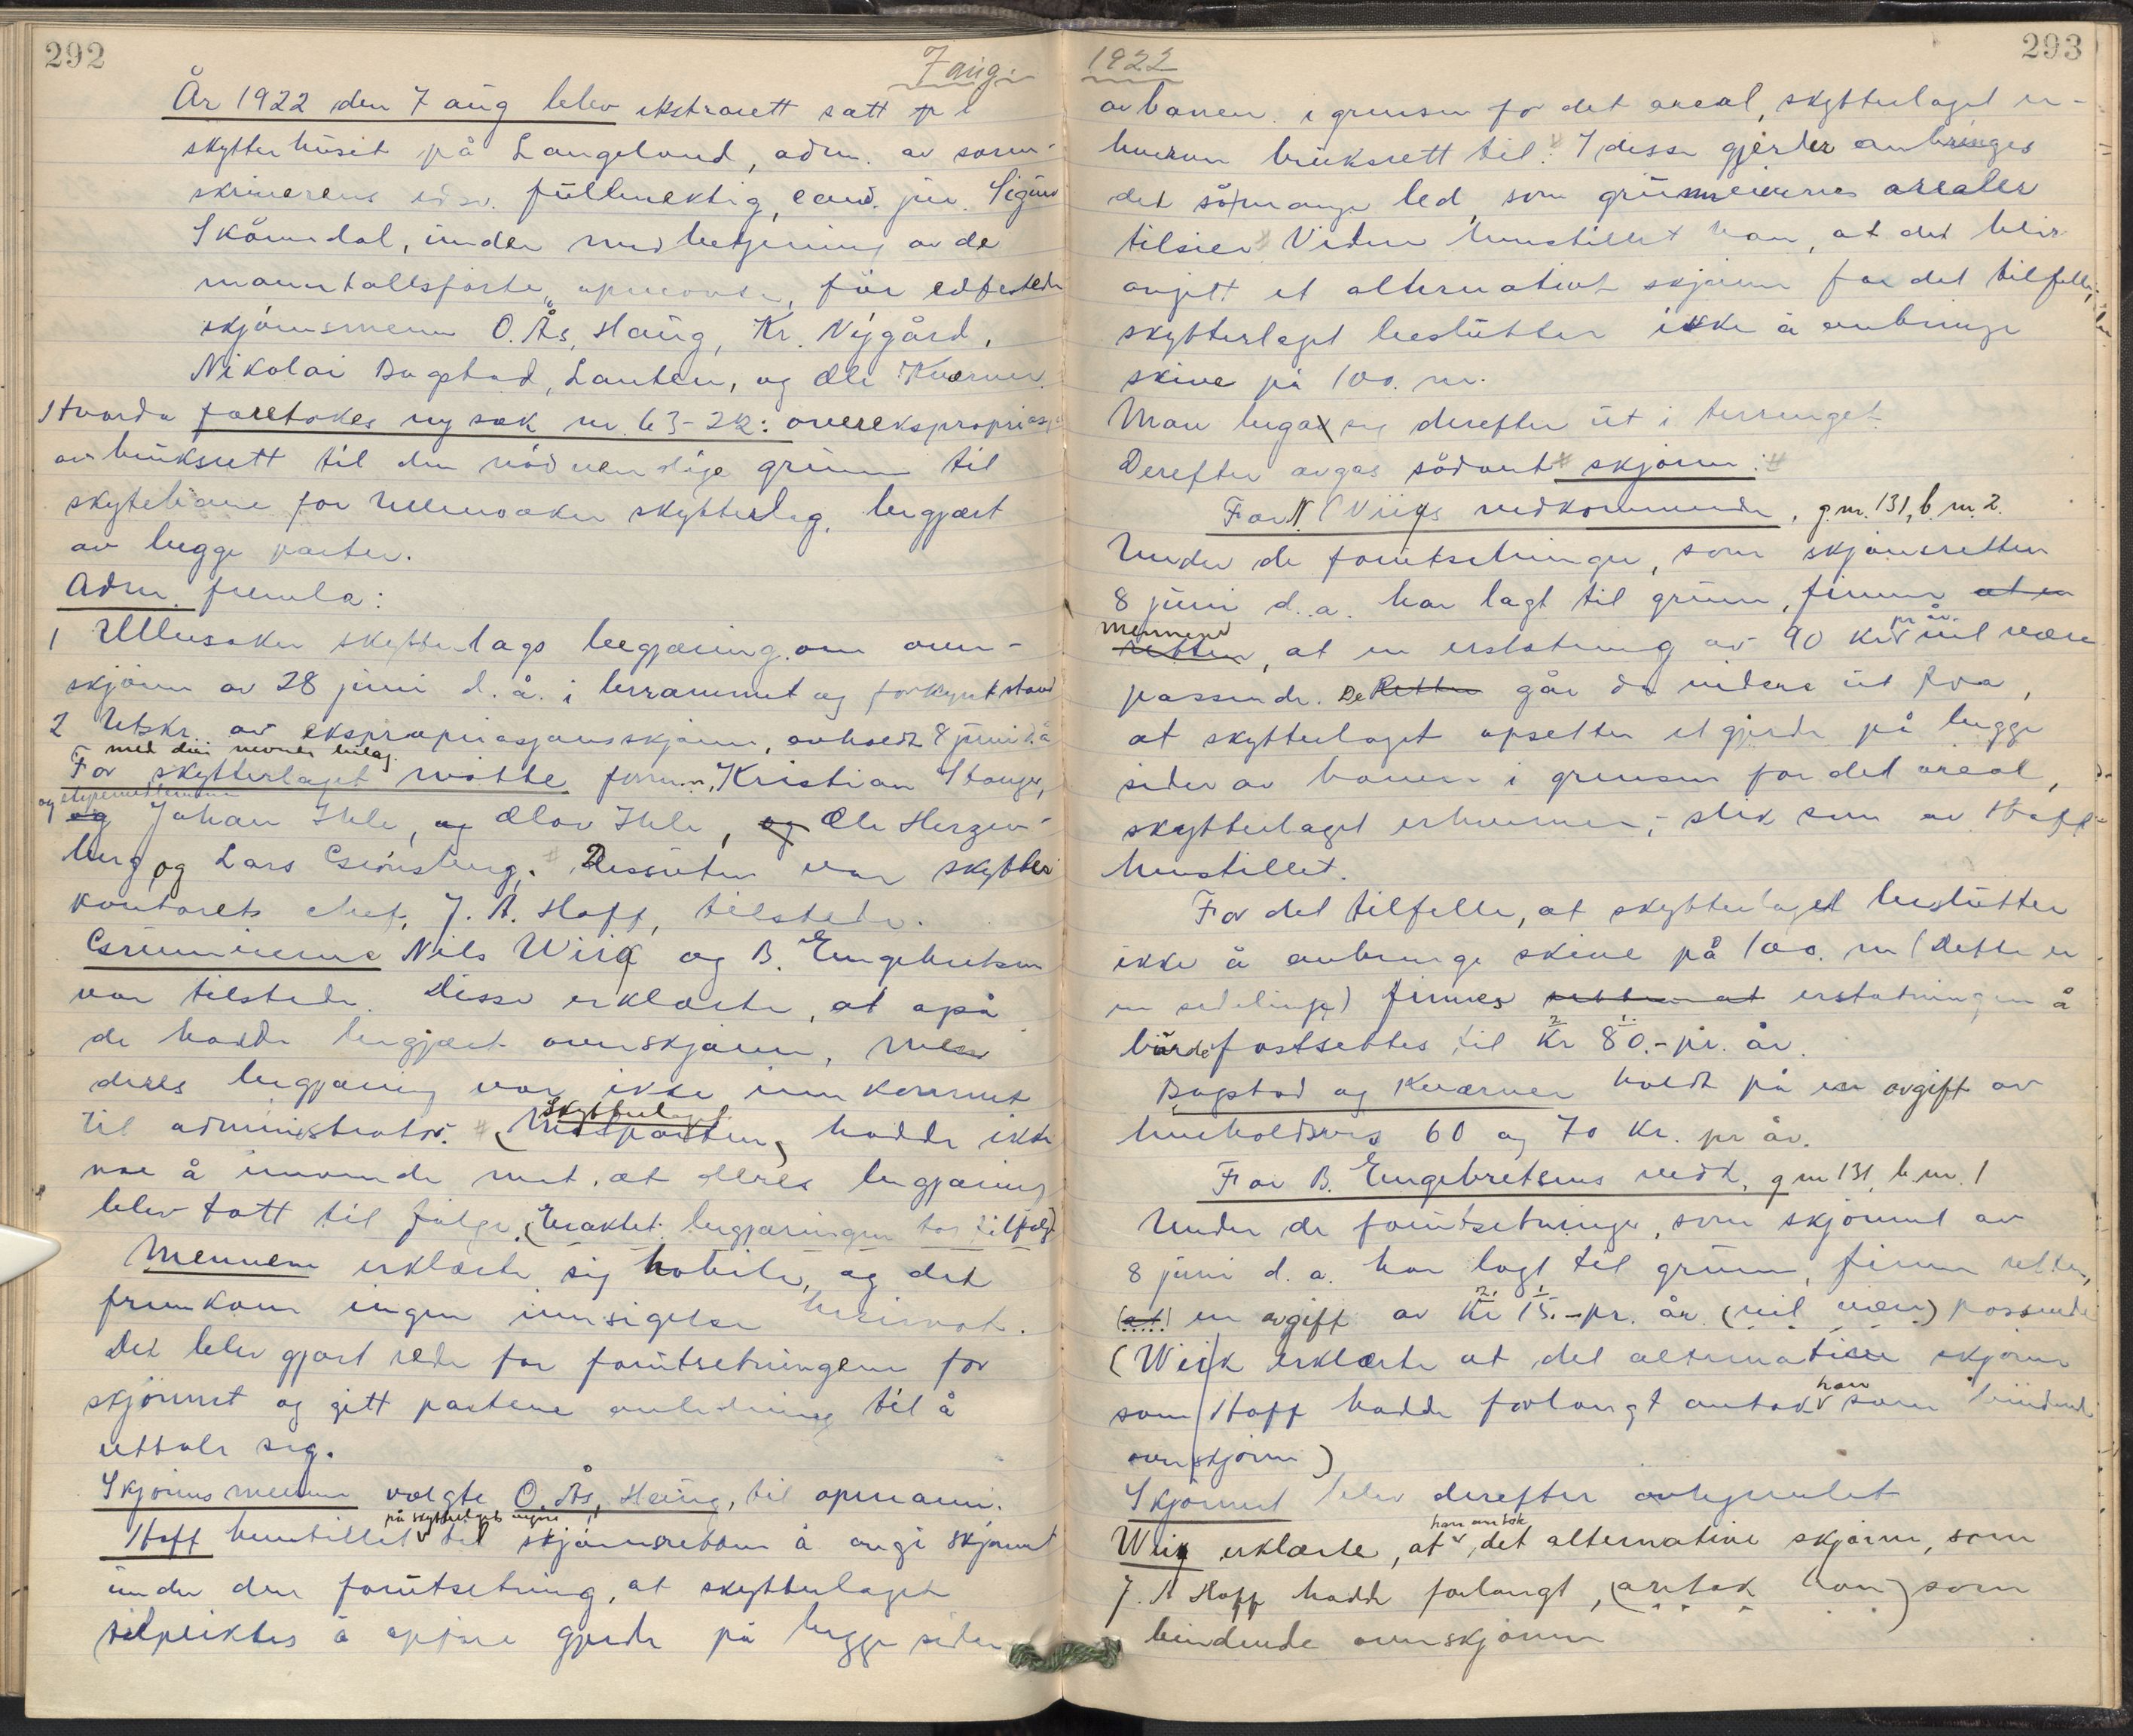 292
7 aug.
År 1922 den 7 aug blev ekstrarett satt i
skytterhuset på Langeland, adm. av soren-
skriverens edsv. fullmektig, cand. jur. Sigurd
Skåmdal, under medbetjening av de
manntallsførte, opnevnte, før edfestede
skjønsmenn O. Ås, Haug, Kr. Nygård,
Nikolai Bogstad, Lauten, og Ole Kverner.
Hvorda foretokes ny sak nr. 63-22: overekspropriasjon
av bruksrett til den nødvendige grunn til
skytebane for Ullensaker skytterlag, begjært
av begge parter.
Adm. fremla:
1 Ullensaker skytterlags begjæring om over-
skjønn av 28 juni d. å. i berammet og forkynt stand
2 Utskr. av ekspropriasjonsskjønn, avholdt 8 juni d. å
med de i nevnte bilag.
For skytterlaget møtte form. Kristian Stanger,
og styremedlemmene
og Johan Ihle, og Olav Ihle, og Ole Herzen-
berg og Lars Grønsberg. Dessuten var skytter
kontorets chef, J. A. Hoff, tilstede.
Grunneierne Nils Wiig og B. Engebretsen
var tilstede. Disse erklærte, at også
de hadde begjært overskjønn, men
deres begjæring var ikke innkommet
til administrator. Skytterlaget
(Motparten) hadde ikke
noe å innvende mot, at deres begjæring
blev tatt til følge. (Eraktet begjæringen tas tilfølge)
Mennene erklærte sig habile, og det
fremkom ingen innsigelse herimot.
Det blev gjort rede for forutsetningene for
skjønnet og gitt partene anledning til å
uttale sig.
Skjønsmennene valgte O. Ås, Haug, til opmann.
på skytterlagets vegne
Hoff henstillet til skjønsretten å avgi skjønnet
under den forutsetning, at skytterlaget
tilpliktes å opføre gjerde på begge sider
1922
293
av banen i grensen for det areal, skytterlaget er-
hverver bruksrett til. I disse gjerder anbringes
det så mange led, som grunneiernes arealer
tilsier. Videre henstillet han, at det blir
avgitt et alternativt skjønn for det tilfelle,
skytterlaget beslutter ikke å anbringe
skive på 100. m.
Man begav sig derefter ut i terrenget.
Derefter avgas sådant skjønn:
For N Wiigs vedkommende, g. nr. 131, b. nr. 2.
Under de forutsetninger, som skjønsretten
8 juni d. a. har lagt til grunn, finner at en
mennene pr år.
retten, at en erstatning av 90 Kr vil være
passende. De Retten går da videre ut fra,
at skytterlaget opsetter et gjerde på begge
sider av banen i grensen for det areal,
skytterlaget erhverver, slik som av Hoff
henstillet.
For det tilfelle, at skytterlaget beslutter
ikke å anbringe skive på 100. m (Dette er
en sedelinje) finnes retten at erstatningen å
burde fastsettes til Kr 80.- pr. år.
Bogstad og Kverner holdt på en avgift av
henholdsvis 60 og 70 Kr. pr år.
For B. Engebretsens vedk. g nr 131, b. nr. 1
Under de forutsetninger, som skjønnet av
8 juni d. a. har lagt til grunn, finner retten,
(at) en avgift av Kr 15.- pr. år (vil være) passende
(Wiik erklærte at det alternative skjønn
som Hoff hadde forlangt antok han som bindende
overskjønn)
Skjønnet blev derefter avhjemlet
han antok
Wiig erklærte, at det alternative skjønn, som
J. A Hoff hadde forlangt, (antok han) som
bindende overskjønn